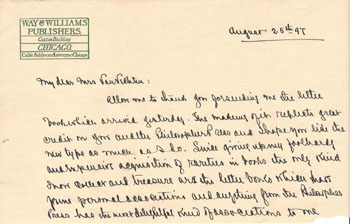 WAY & WILLIAMS
PUBLISHERS.
Caxton Building
CHICAGO.
Cable Address Auvergne Chicago
August 25th 97
My dear Mrs
Allow me to thank you for sending me the little
book which arrived yesterday. The making of it reflects great
credit on you and the Philosopher Press and I hope you like the
new type as much as I do. Since giving up my foolhardy
and expensive acquisition of rarities in books the only kind
I now collect and treasure are the little books which have
some personal associations and anything from the Philosopher
Press has the most delightful kind of associations to me.